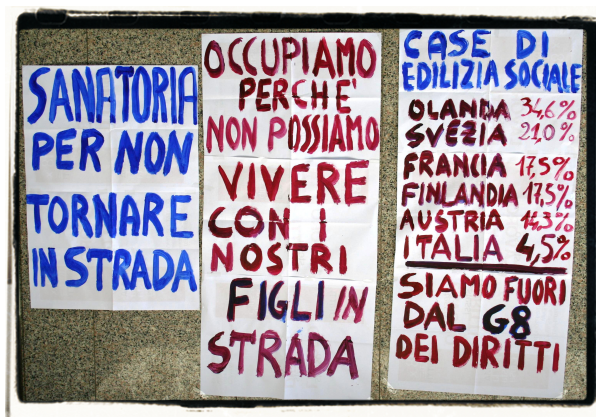 SANATORIA
PER NON
TORNARE
IN STRADA
OCCUPIAMO
PERCHE'
NON POSSIAMO
VIVERE
CON I
NOSTRI
FIGLI IN
STRADA
CASE DI
EDILIZIA SOCIALE
OLANDA 34,6%
SVEZIA 21,0%
FRANCIA 17,5%
FINLANDIA 17,5%
AUSTRIA 14,3%
ITALIA 4,5%
SIAMO FUORI
DAL G8
DEI DIRITTI